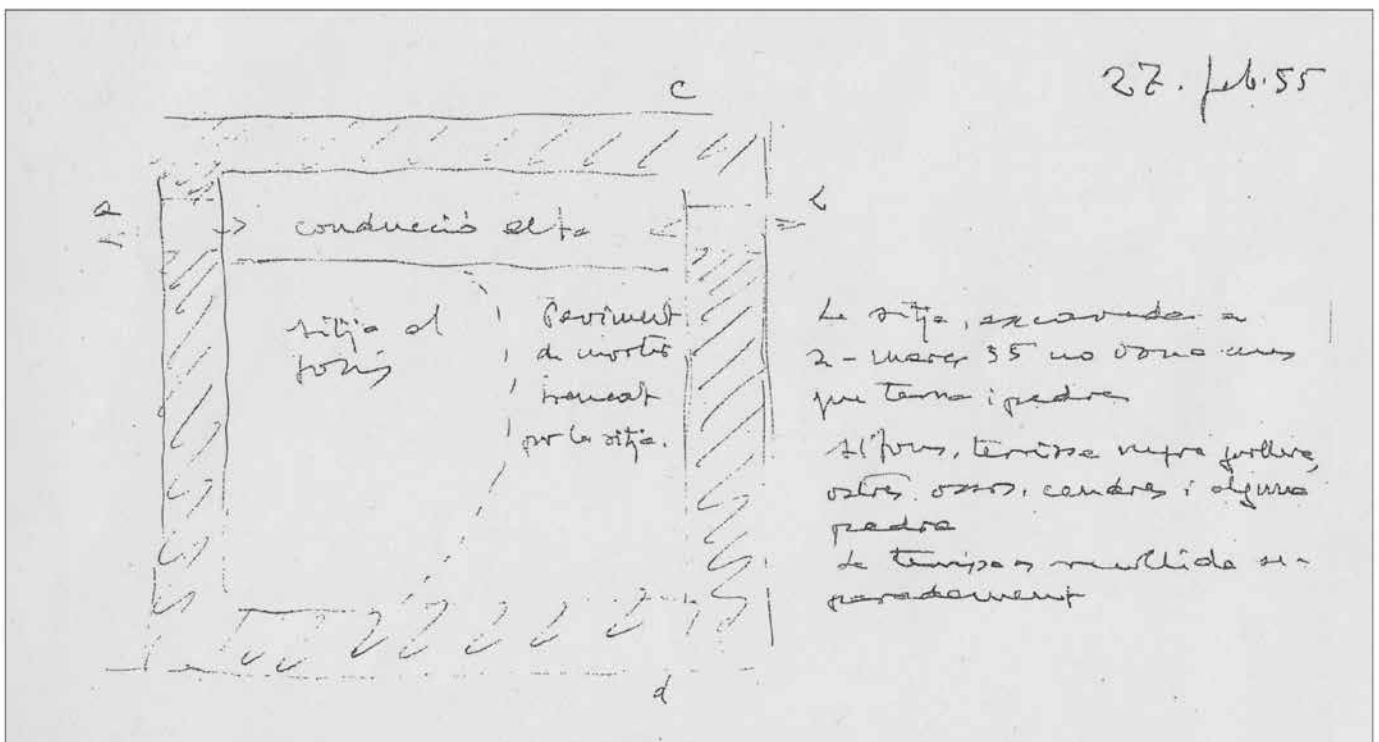 27. feb. 55
c
a
b
conducció alta
sitja al
fons
Paviment
de morter
trencat
per la sitja.
La sitja, excavada a
2 - març 55 no dona mes
que terra i pedres
Al fons, terrissa negra grollera,
ostres. ossos, cendres i alguna
pedra
La terrissa es recullida se-
paradament
d